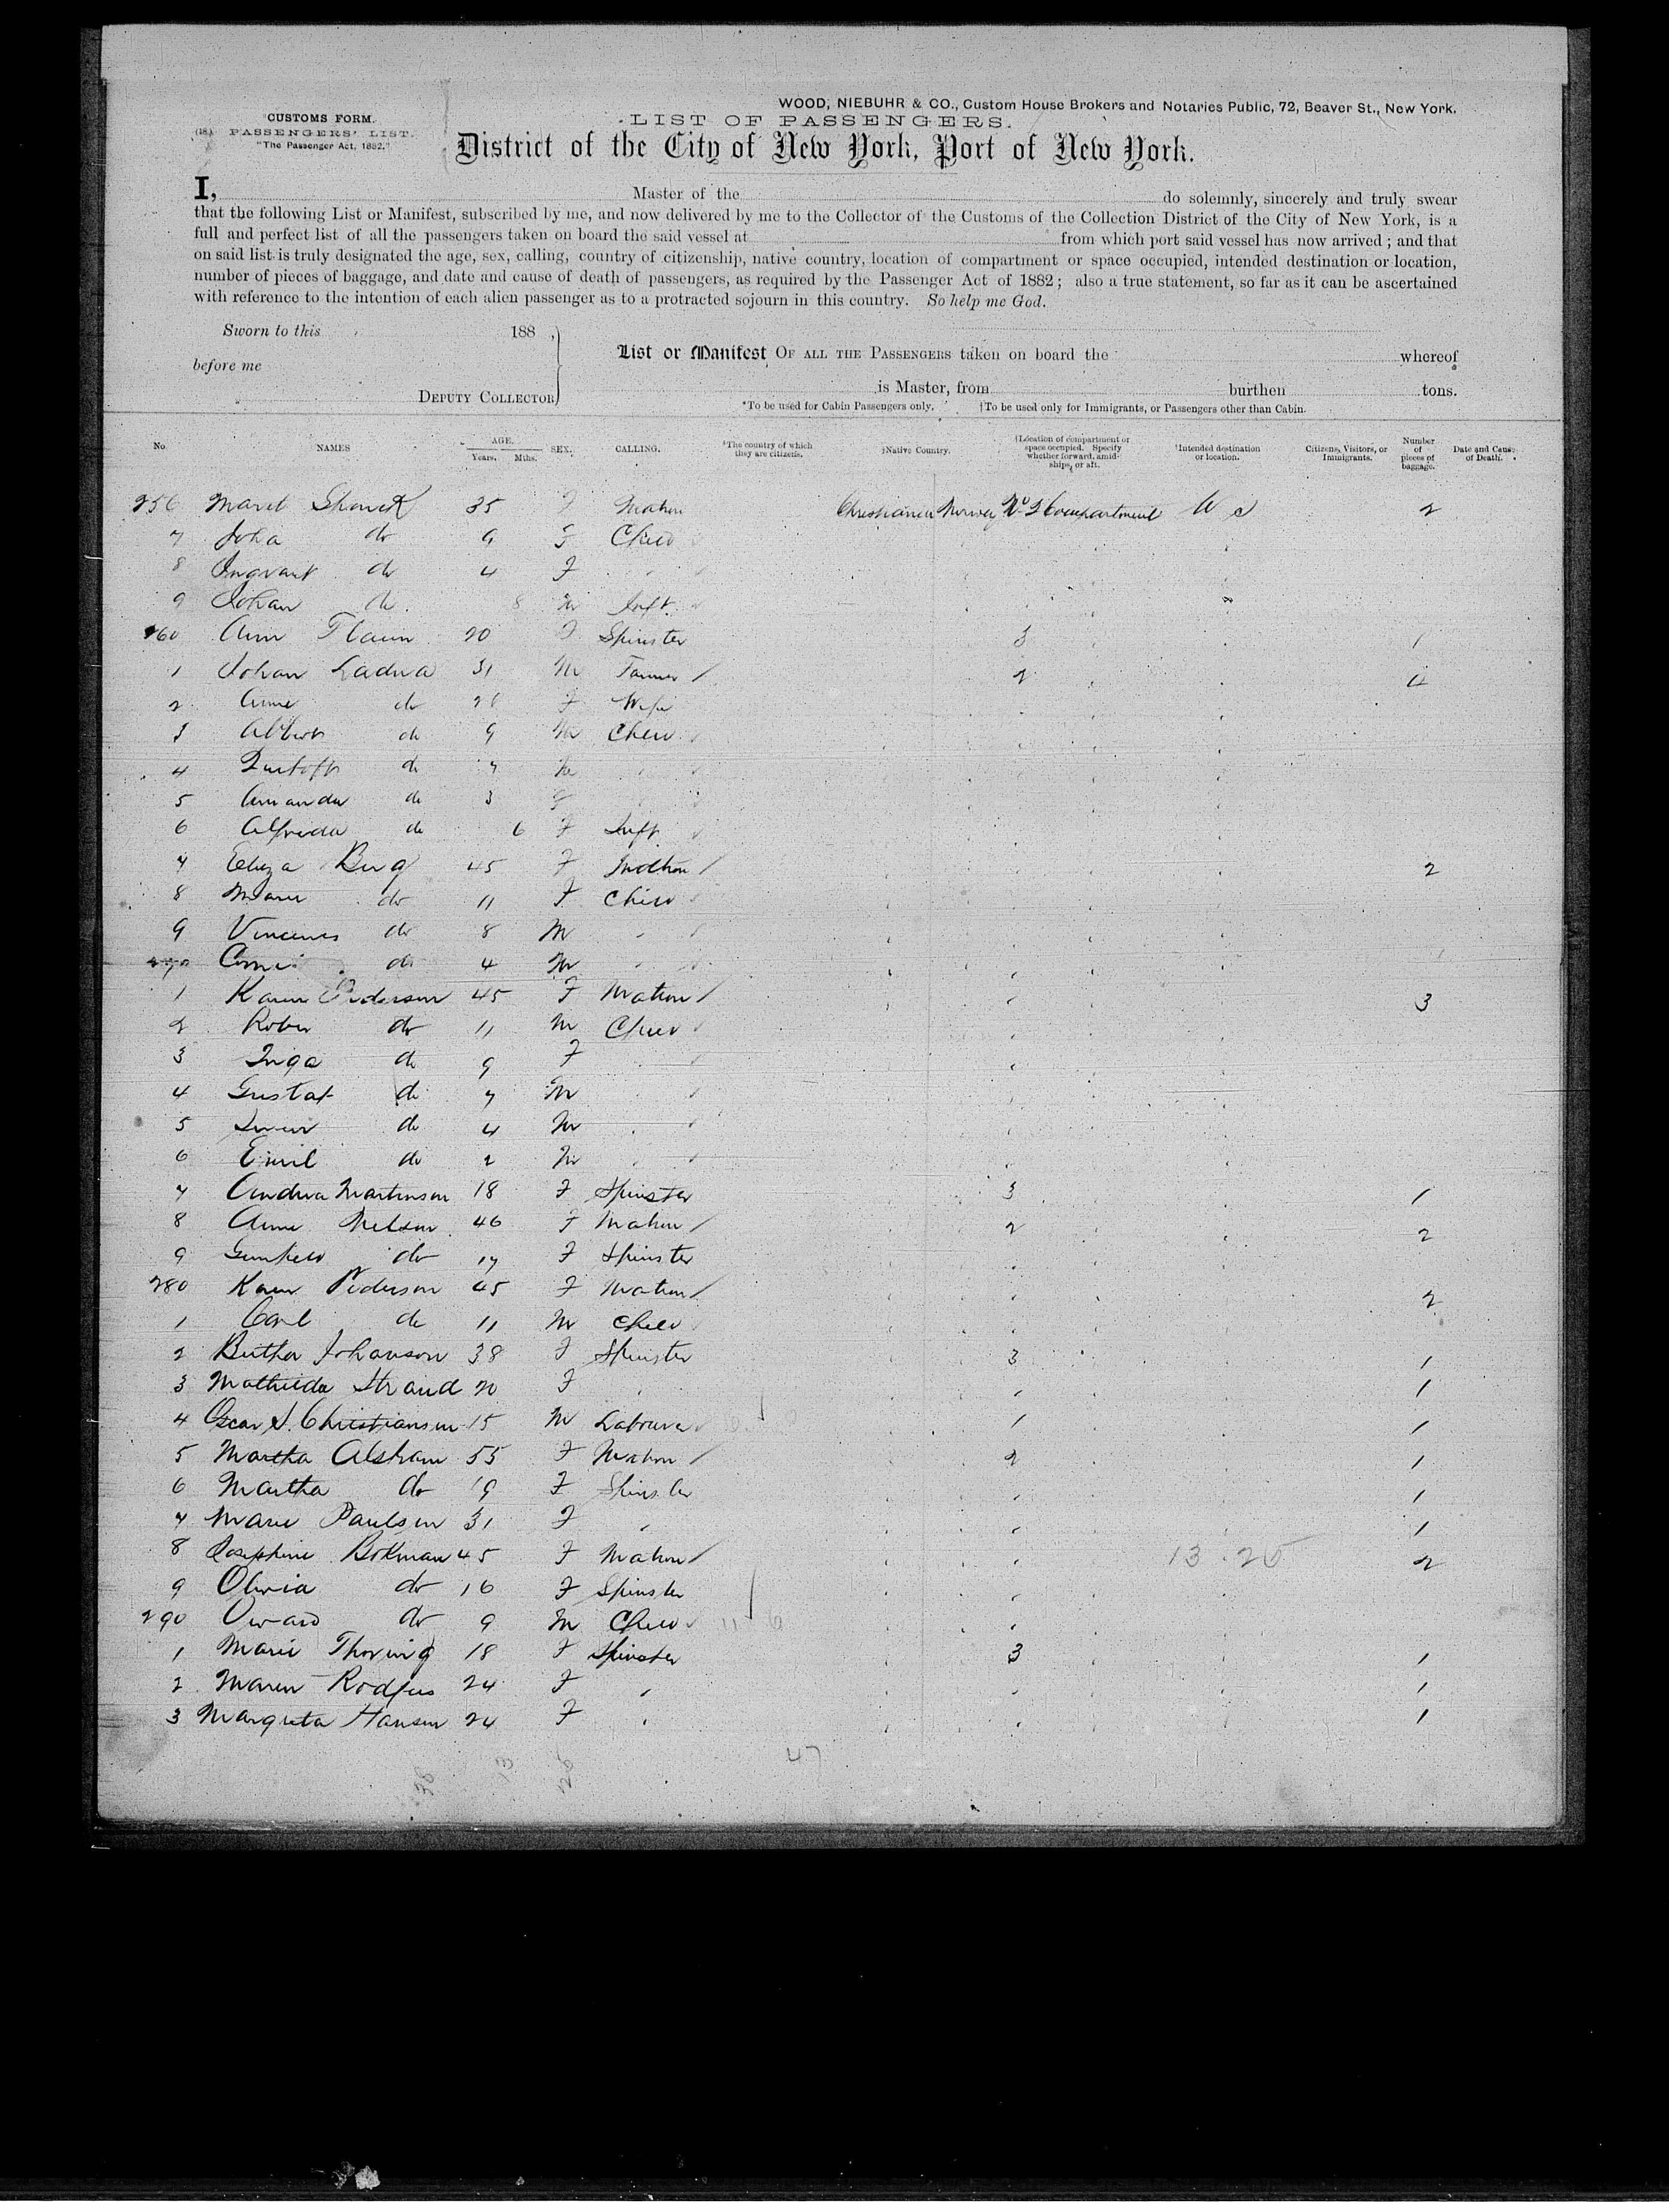 WOOD, NIEBUHR & CO., Custom House Brokers and Notaries Public, 72, Beaver St., New York.
CUSTOMS FORM.
PASSENGERS' LIST.
"The Passenger Act, 1882."
LIST OF PASSENGERS.
District of the City of New York, Port of New York.
I, Master of the do solemnly, sincerely and truly swear
that the following List or Manifest, subscribed by me, and now delivered by me to the Collector of the Customs of the Collection District of the City of New York, is a
full and perfect list of all the passengers taken on board the said vessel at from which port said vessel has now arrived; and that
on said list is truly designated the age, sex, calling, country of citizenship, native country, location of compartment or space occupied, intended destination or location,
number of pieces of baggage, and date and cause of death of passengers, as required by the Passenger Act of 1882; also a true statement, so far as it can be ascertained
with reference to the intention of each alien passenger as to a protracted sojourn in this country. So help me God.
Sworn to this 188
before me
DEPUTY COLLECTOR
List or Manifest OF ALL THE PASSENGERS taken on board the whereof
is Master, from burthen tons.
*To be used for Cabin Passengers only. †To be used only for Immigrants, or Passengers other than Cabin.
No. NAMES AGE. Years. Mths. SEX. CALLING. *The country of which they are citizens. †Native Country. †Location of compartment or space occupied. Specify whether forward, amidships, or aft. *Intended destination or location. Citizens, Visitors, or Immigrants. Number of pieces of baggage. Date and Cause of Death.
256 35 F Matron Christiania Norway No 2 Compartment U S 2
7 do 9 F Child
8 do 4 F
9 Johan do 8 M Inft
260 20 F Spinster 3 1
1 Johan 31 M Farmer 2 4
2 Anne do 26 F Wife
3 Albert do 9 M Child
4 do 7 M
5 Amanda do 3 F
6 Alfrida do 6 F Inft
7 Eliza Berg 45 F Mothon 2
8 Marie do 11 F Child
9 do 8 M
270 do 4 M
1 Karen Pederson 45 F Matron 3
2 do 11 M Child
3 Inga do 9 F
4 Gustaf do 7 M
5 do 4 M
6 Emil do 2 M
7 Andrea Martinson 18 F Spinster 3 1
8 Anne Nelson 46 F Matron 2 2
9 do 17 F Spinster
280 Karen Pederson 45 F Matron 2
1 Carl do 11 M Child
2 Johanson 38 F Spinster 3 1
3 Mathilda Strand 20 F 1
4 Oscar S. Christianson 15 M Labourer 1 1
5 Martha 55 F Matron 2 1
6 Martha do 19 F Spinster 1
7 Marie Paulsen 31 F 1
8 Josephine 45 F Matron 13.25 2
9 Olivia do 16 F Spinster
290 do 9 M Child
1 Marie 18 F Spinster 3 1
2 Maren 24 F 1
3 Margreta Hansen 24 F 1
47